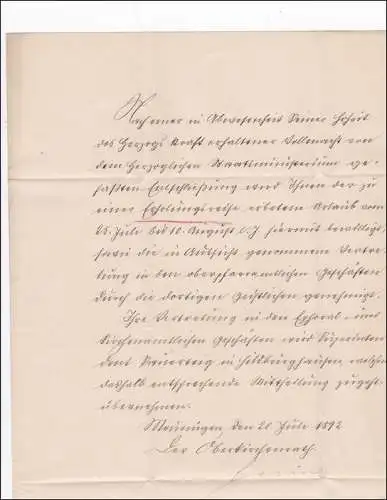 Nach einer in Abwesenheit Seiner Hoheit
des Herzogs Kraft erhaltener Vollmacht von
dem Herzoglichen Staatsministerium ge-
faßten Entschließung wird Ihnen der zu
einer Erholungsreise erbetene Urlaub vom
25. Juli bis 10. August l. J. hiermit bewilligt,
sowie die in Aussicht genommene Vertre-
tung in den oberpfarramtlichen Geschäften
durch die dortigen Geistlichen genehmigt.
Ihre Vertretung in den Ephoral- und
Kirchenamtlichen Geschäften wird Superinten-
dent in Hildburghausen, welchem
deshalb entsprechende Mittheilung zugeht,
übernehmen.
Meiningen, den 21. Juli 1892
Der Oberkirchenrath.